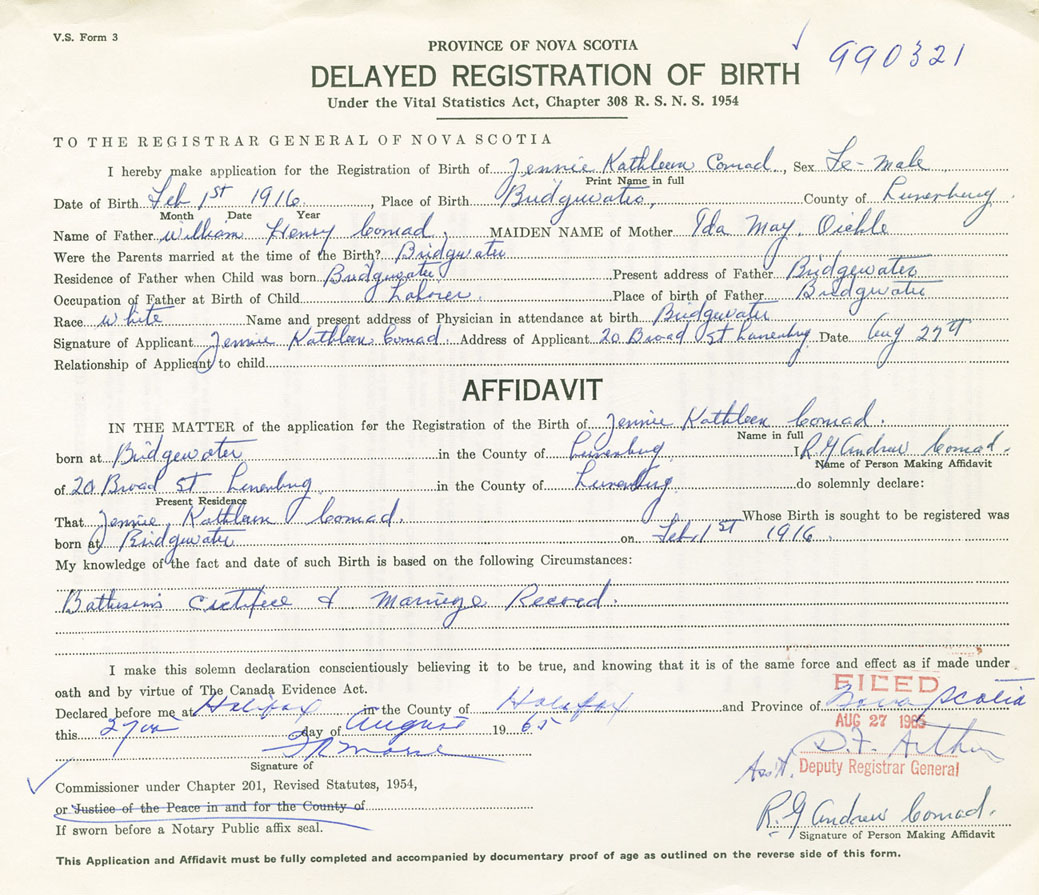 V.S. Form 3
990321
PROVINCE OF NOVA SCOTIA
DELAYED REGISTRATION OF BIRTH
Under the Vital Statistics Act, Chapter 308 R. S. N. S. 1954
TO THE REGISTRAR GENERAL OF NOVA SCOTIA
I hereby make application for the Registration of Birth of Jennie Kathleen Conrad, Sex Fe-male
Print Name in full
Date of Birth Feb 1st 1916, Place of Birth Bridgwater, County of Lunenburg
Month Date Year
Name of Father William Henry Conrad, MAIDEN NAME of Mother Ida May. Oickle
Were the Parents married at the time of the Birth? Bridgwater
Residence of Father when Child was born Bridgwater Present address of Father Bridgewater
Occupation of Father at Birth of Child Laborer. Place of birth of Father Bridgwater
Race White Name and present address of Physician in attendance at birth Bridgwater
Signature of Applicant Jennie Kathleen Conrad Address of Applicant 20 Broad St Lunenburg Date Aug 27th
Relationship of Applicant to child
AFFIDAVIT
IN THE MATTER of the application for the Registration of the Birth of Jennie Kathleen Conrad.
Name in full
born at Bridgewater in the County of Lunenburg I R G Andrew Conrad
Name of Person Making Affidavit
of 20 Broad St Lunenburg in the County of Lunenburg do solemnly declare:
Present Residence
That Jennie Kathleen Conrad. Whose Birth is sought to be registered was
born at Bridgwater on Feb 1st 1916
My knowledge of the fact and date of such Birth is based on the following Circumstances:
& Marriege Record.
I make this solemn declaration conscientiously believing it to be true, and knowing that it is of the same force and effect as if made under
oath and by virtue of The Canada Evidence Act.
FILED
Declared before me at Halifax in the County of Halifax and Province of Nova Scotia
this day of August 19 65
AUG 27 1965
Signature of
D.F. Arthur
Ass't. Deputy Registrar General
Commissioner under Chapter 201, Revised Statutes, 1954,
or Justice of the Peace in and for the County of
R. G Andrew Conrad.
If sworn before a Notary Public affix seal.
Signature of Person Making Affidavit
This Application and Affidavit must be fully completed and accompanied by documentary proof of age as outlined on the reverse side of this form.